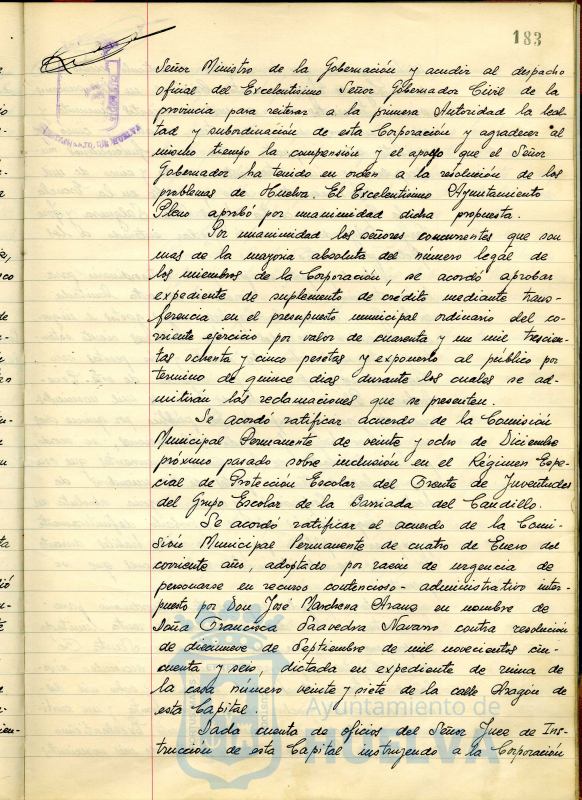 183
Señor Ministro de la Gobernación y acudir al despacho
oficial del Excelentisimo Señor Gobernador Civil de la
provincia para reiterar a la primera Autoridad la leal-
tad y subordinación de esta Corporación y agradecer al
mismo tiempo la compensión y el apoyo que el Señor
Gobernador ha tenido en orden a la resolución de los
problemas de Huelva. El Excelentisimo Ayuntamiento
Pleno aprobó por unanimidad dicha propuesta.
Por unanimidad los señores concurrentes que son
mas de la mayoria absoluta del número legal de
los miembros de la Corporación, se acordó aprobar
expediente de suplemento de crédito mediante trans-
ferencia en el presupuesto municipal ordinario del co-
rriente ejercicio por valor de cuarenta y un mil trescien-
tas ochenta y cinco pesetas y exponerlo al público por
termino de quince dias durante los cuales se ad-
mitirán las reclamaciones que se presenten.
Se acordó ratificar acuerdo de la Comisión
Municipal Permanente de veinte y ocho de Diciembre
próximo pasado sobre inclusión en el Régimen Espe-
cial de Protección Escolar del Frente de Juventudes
del Grupo Escolar de la Barriada del Caudillo.
Se acordó ratificar el acuerdo de la Comi-
sión Municipal Permanente de cuatro de Enero del
corriente año, adoptado por razón de urgencia de
personarse en recurso contencioso-administrativo inter-
puesto por Don José Marchena Arana en nombre de
Doña Francisca Saavedra Navarro contra resolución
de diecinueve de Septiembre de mil novecientos cin-
cuenta y seis, dictada en expediente de ruina de
la casa número veinte y siete de la calle Aragón de
esta Capital.
Dada cuenta de oficios del Señor Juez de Ins-
trucción de esta Capital instruyendo a la Corporación
Ayuntamiento de
HUELVA